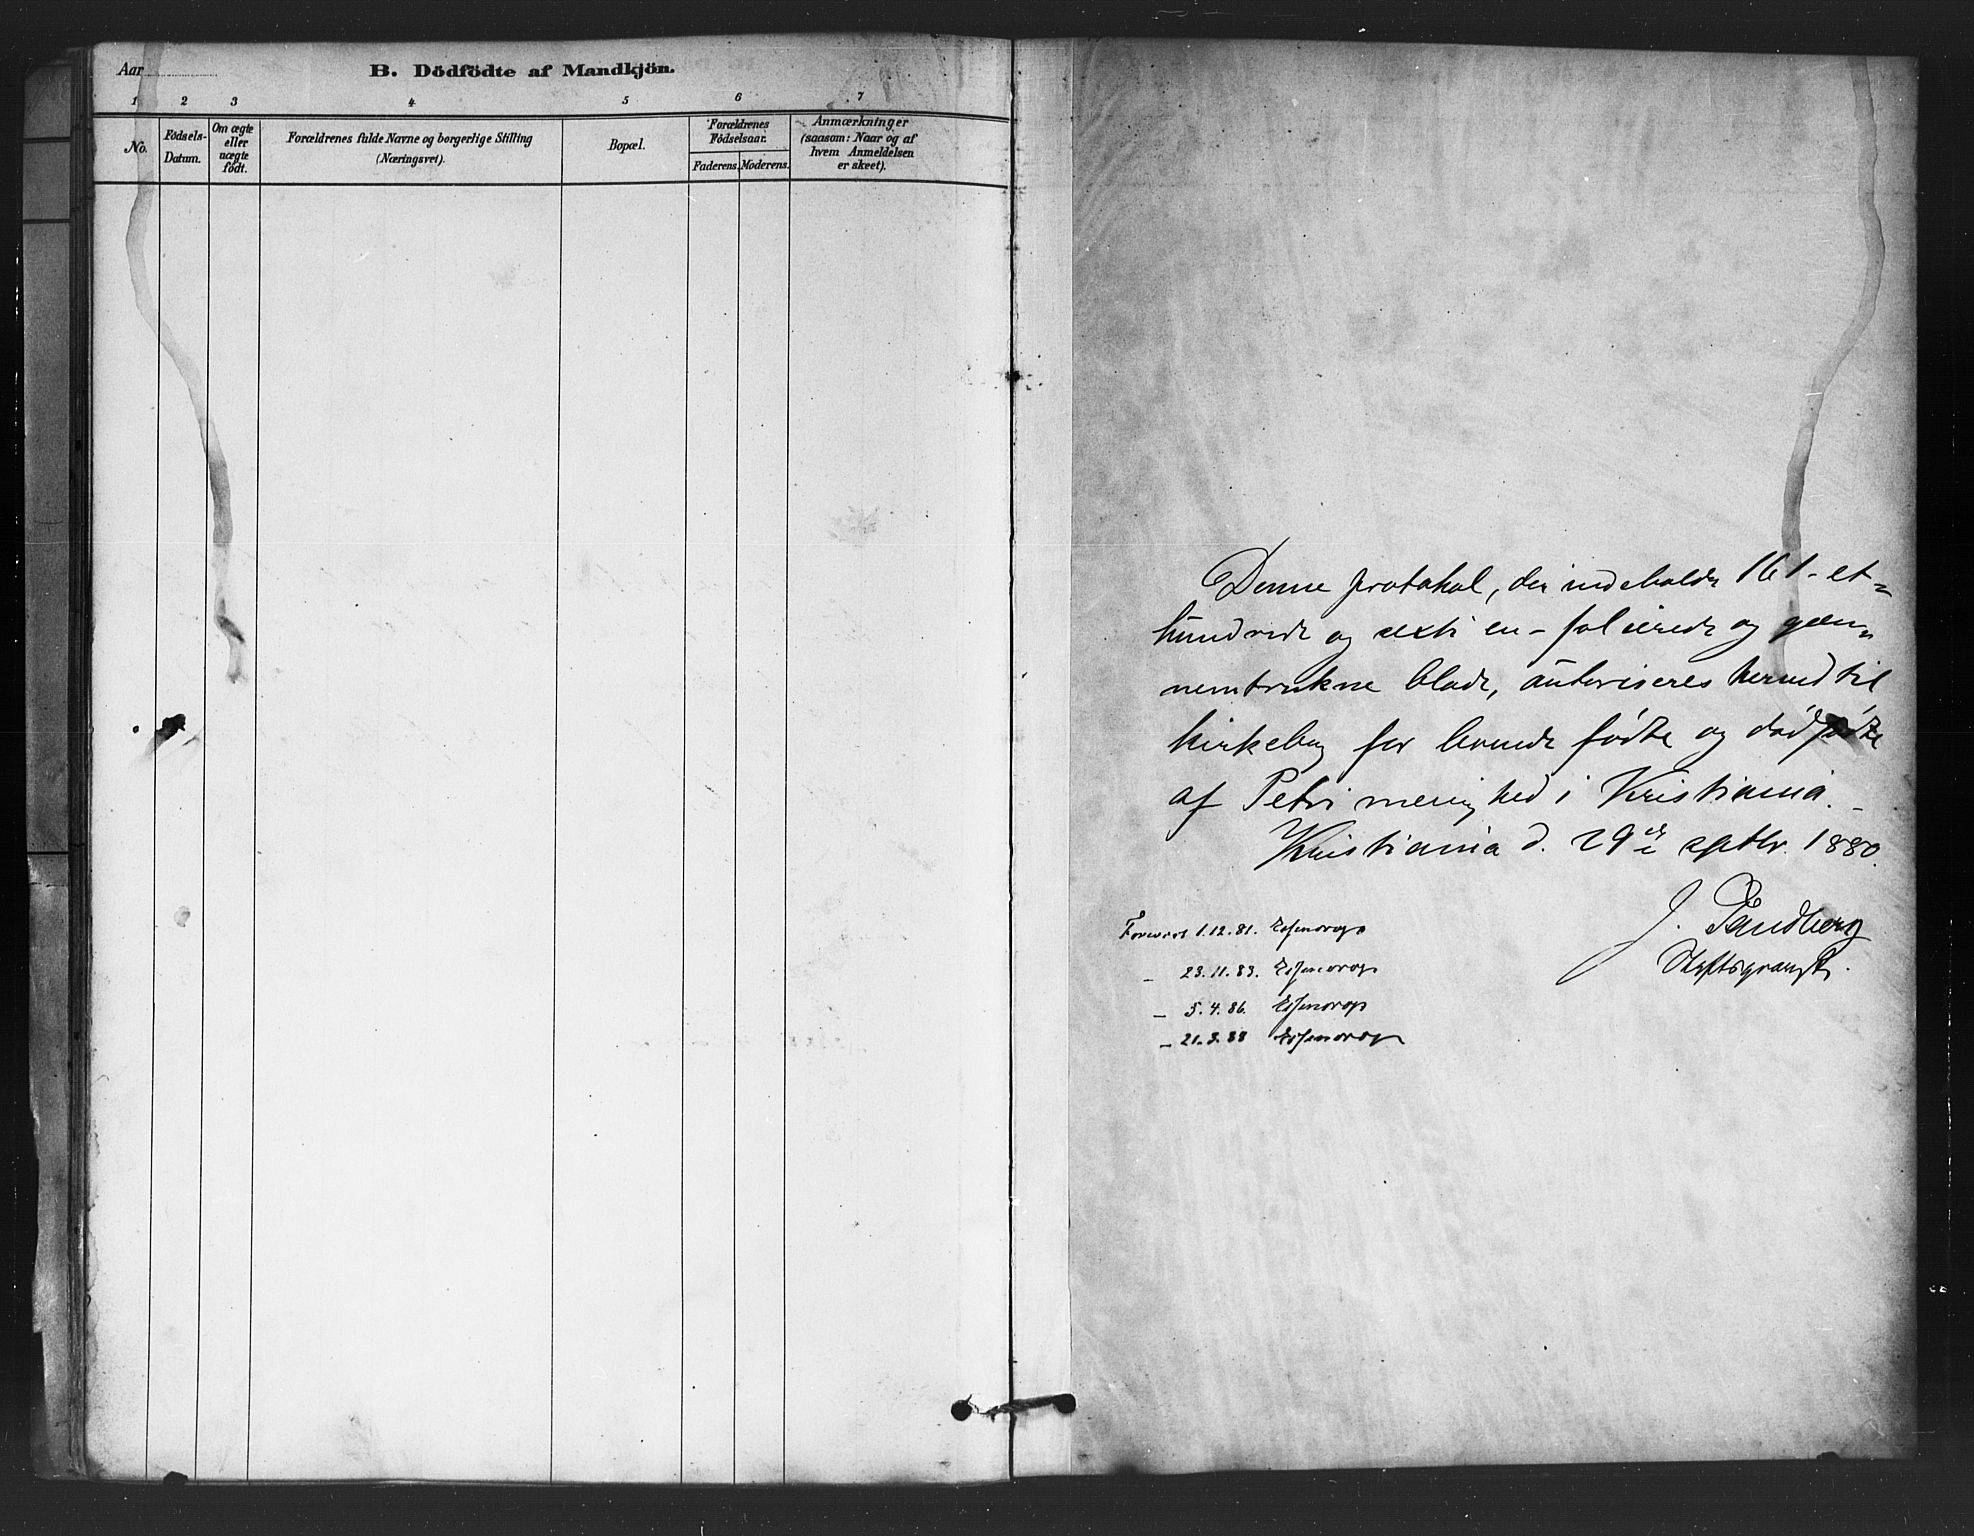 Aar
B. Dödfödte af Mandkjön.
1 2 3 4 5 6 7
No.
Födsels-
Datum.
Om ægte
eller
uægte
födt.
Forældrenes fulde Navne og borgerlige Stilling
(Næringsvei).
Bopæl.
Forældrenes
Födselsaar.
Faderens. Moderens.
Anmærkninger
(saasom: Naar og af
hvem Anmeldelsen
er skeet).
Denne protokol, der indeholder 161 - et=
hundrede og sexti en - folierede og gjen=
nemtrukne blade, autoriseres herved til
kirkebog for levende födte og dödfödte
af Petri menighed i Kristiania. -
Kristiania d. 29de septbr. 1880.
J. Sandberg
Stiftsprovst.
Forevist 1.12.81.
- 23.11.83.
- 5.4.86.
- 21.3.88